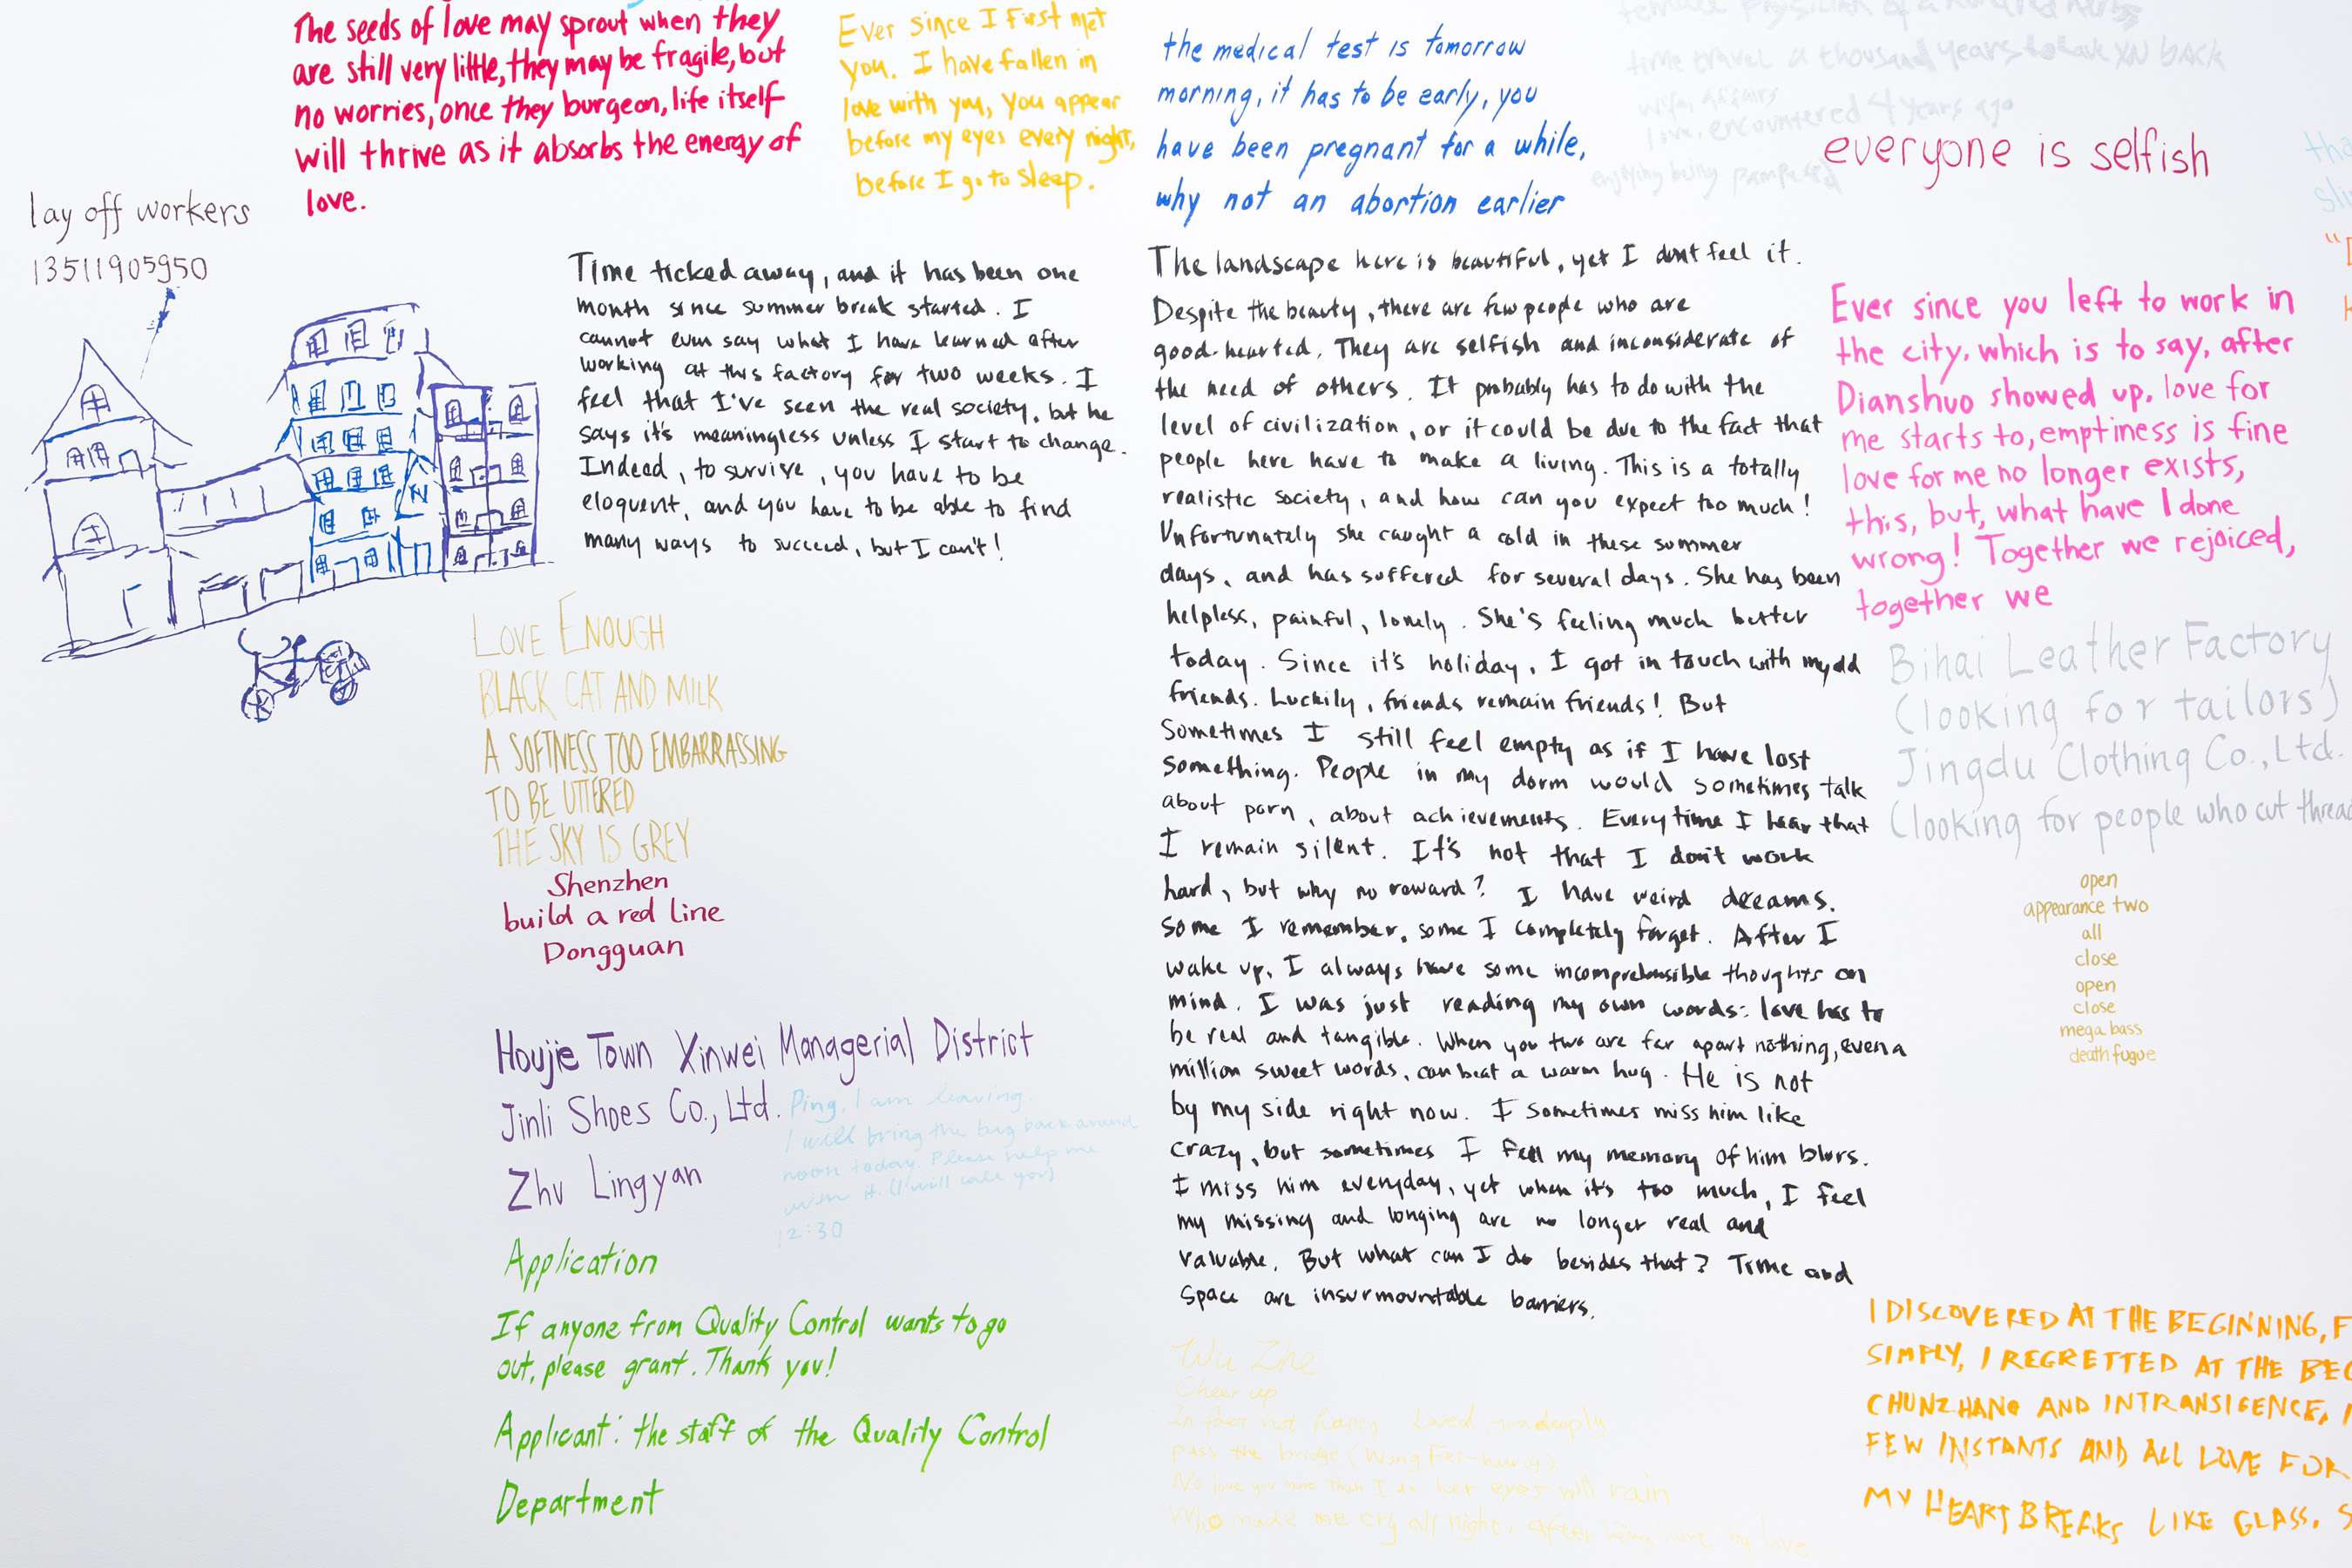 The seeds of love may sprout when they
are still very little, they may be fragile, but
no worries, once they burgeon, life itself
will thrive as it absorbs the energy of
love.
Ever since I first met
you. I have fallen in
love with you, you appear
before my eyes every night,
before I go to sleep.
the medical test is tomorrow
morning, it has to be early, you
have been pregnant for a while,
why not an abortion earlier
time travel a thousand years to back
wife, affairs
love, encountered 4 years ago
enjoying being pampered
everyone is selfish
lay off workers
13511905950
Time ticked away, and it has been one
month since summer break started. I
cannot even say what I have learned after
working at this factory for two weeks. I
feel that I've seen the real society, but he
says it's meaningless unless I start to change.
Indeed, to survive, you have to be
eloquent, and you have to be able to find
many ways to succeed, but I can't!
The landscape here is beautiful, yet I don't feel it.
Despite the beauty, there are few people who are
good-hearted. They are selfish and inconsiderate of
the need of others. It probably has to do with the
level of civilization, or it could be due to the fact that
people here have to make a living. This is a totally
realistic society, and how can you expect too much!
Unfortunately she caught a cold in these summer
days, and has suffered for several days. She has been
helpless, painful, lonely. She's feeling much better
today. Since it's holiday, I got in touch with my old
friends. Luckily, friends remain friends! But
Sometimes I still feel empty as if I have lost
something. People in my dorm would sometimes talk
about porn, about achievements. Everytime I hear that
I remain silent. It's not that I don't work
hard, but why no reward? I have weird dreams.
Some I remember, some I completely forget. After I
wake up, I always have some incomprehensible thoughts on
mind. I was just reading my own words: love has to
be real and tangible. When you two are far apart nothing, even a
million sweet words, can beat a warm hug. He is not
by my side right now. I sometimes miss him like
crazy, but sometimes I feel my memory of him blurs.
I miss him everyday, yet when it's too much, I feel
my missing and longing are no longer real and
valuable. But what can I do besides that? Time and
space are insurmountable barriers.
Ever since you left to work in
the city, which is to say, after
Dianshuo showed up, love for
me starts to, emptiness is fine
love for me no longer exists,
this, but, what have I done
wrong! Together we rejoiced,
together we
Bihai Leather Factory
(looking for tailors)
Jingdu Clothing Co., Ltd.
(looking for people who cut thread
open
appearance two
all
close
open
close
mega bass
death fugue
LOVE ENOUGH
BLACK CAT AND MILK
A SOFTNESS TOO EMBARRASSING
TO BE UTTERED
THE SKY IS GREY
Shenzhen
build a red line
Dongguan
Houjie Town Xinwei Managerial District
Jinli Shoes Co., Ltd.
Zhu Lingyan
Ping, I am leaving.
I will bring the bag back around
noon today. Please help me
with it. (I will call you)
12:30
Application
If anyone from Quality Control wants to go
out, please grant. Thank you!
Applicant: the staff of the Quality Control
Department
Wu Zhe
Cheer up
not happy Loved
pass the bridge (Wong Fei-hung)
No love you more than I do her eyes will rain
Who made me cry all night, after
I DISCOVERED AT THE BEGINNING, F
SIMPLY, I REGRETTED AT THE BEG
CHUNZHANG AND INTRANSIGENCE,
FEW INSTANTS AND ALL LOVE FOR
MY HEART BREAKS LIKE GLASS. S